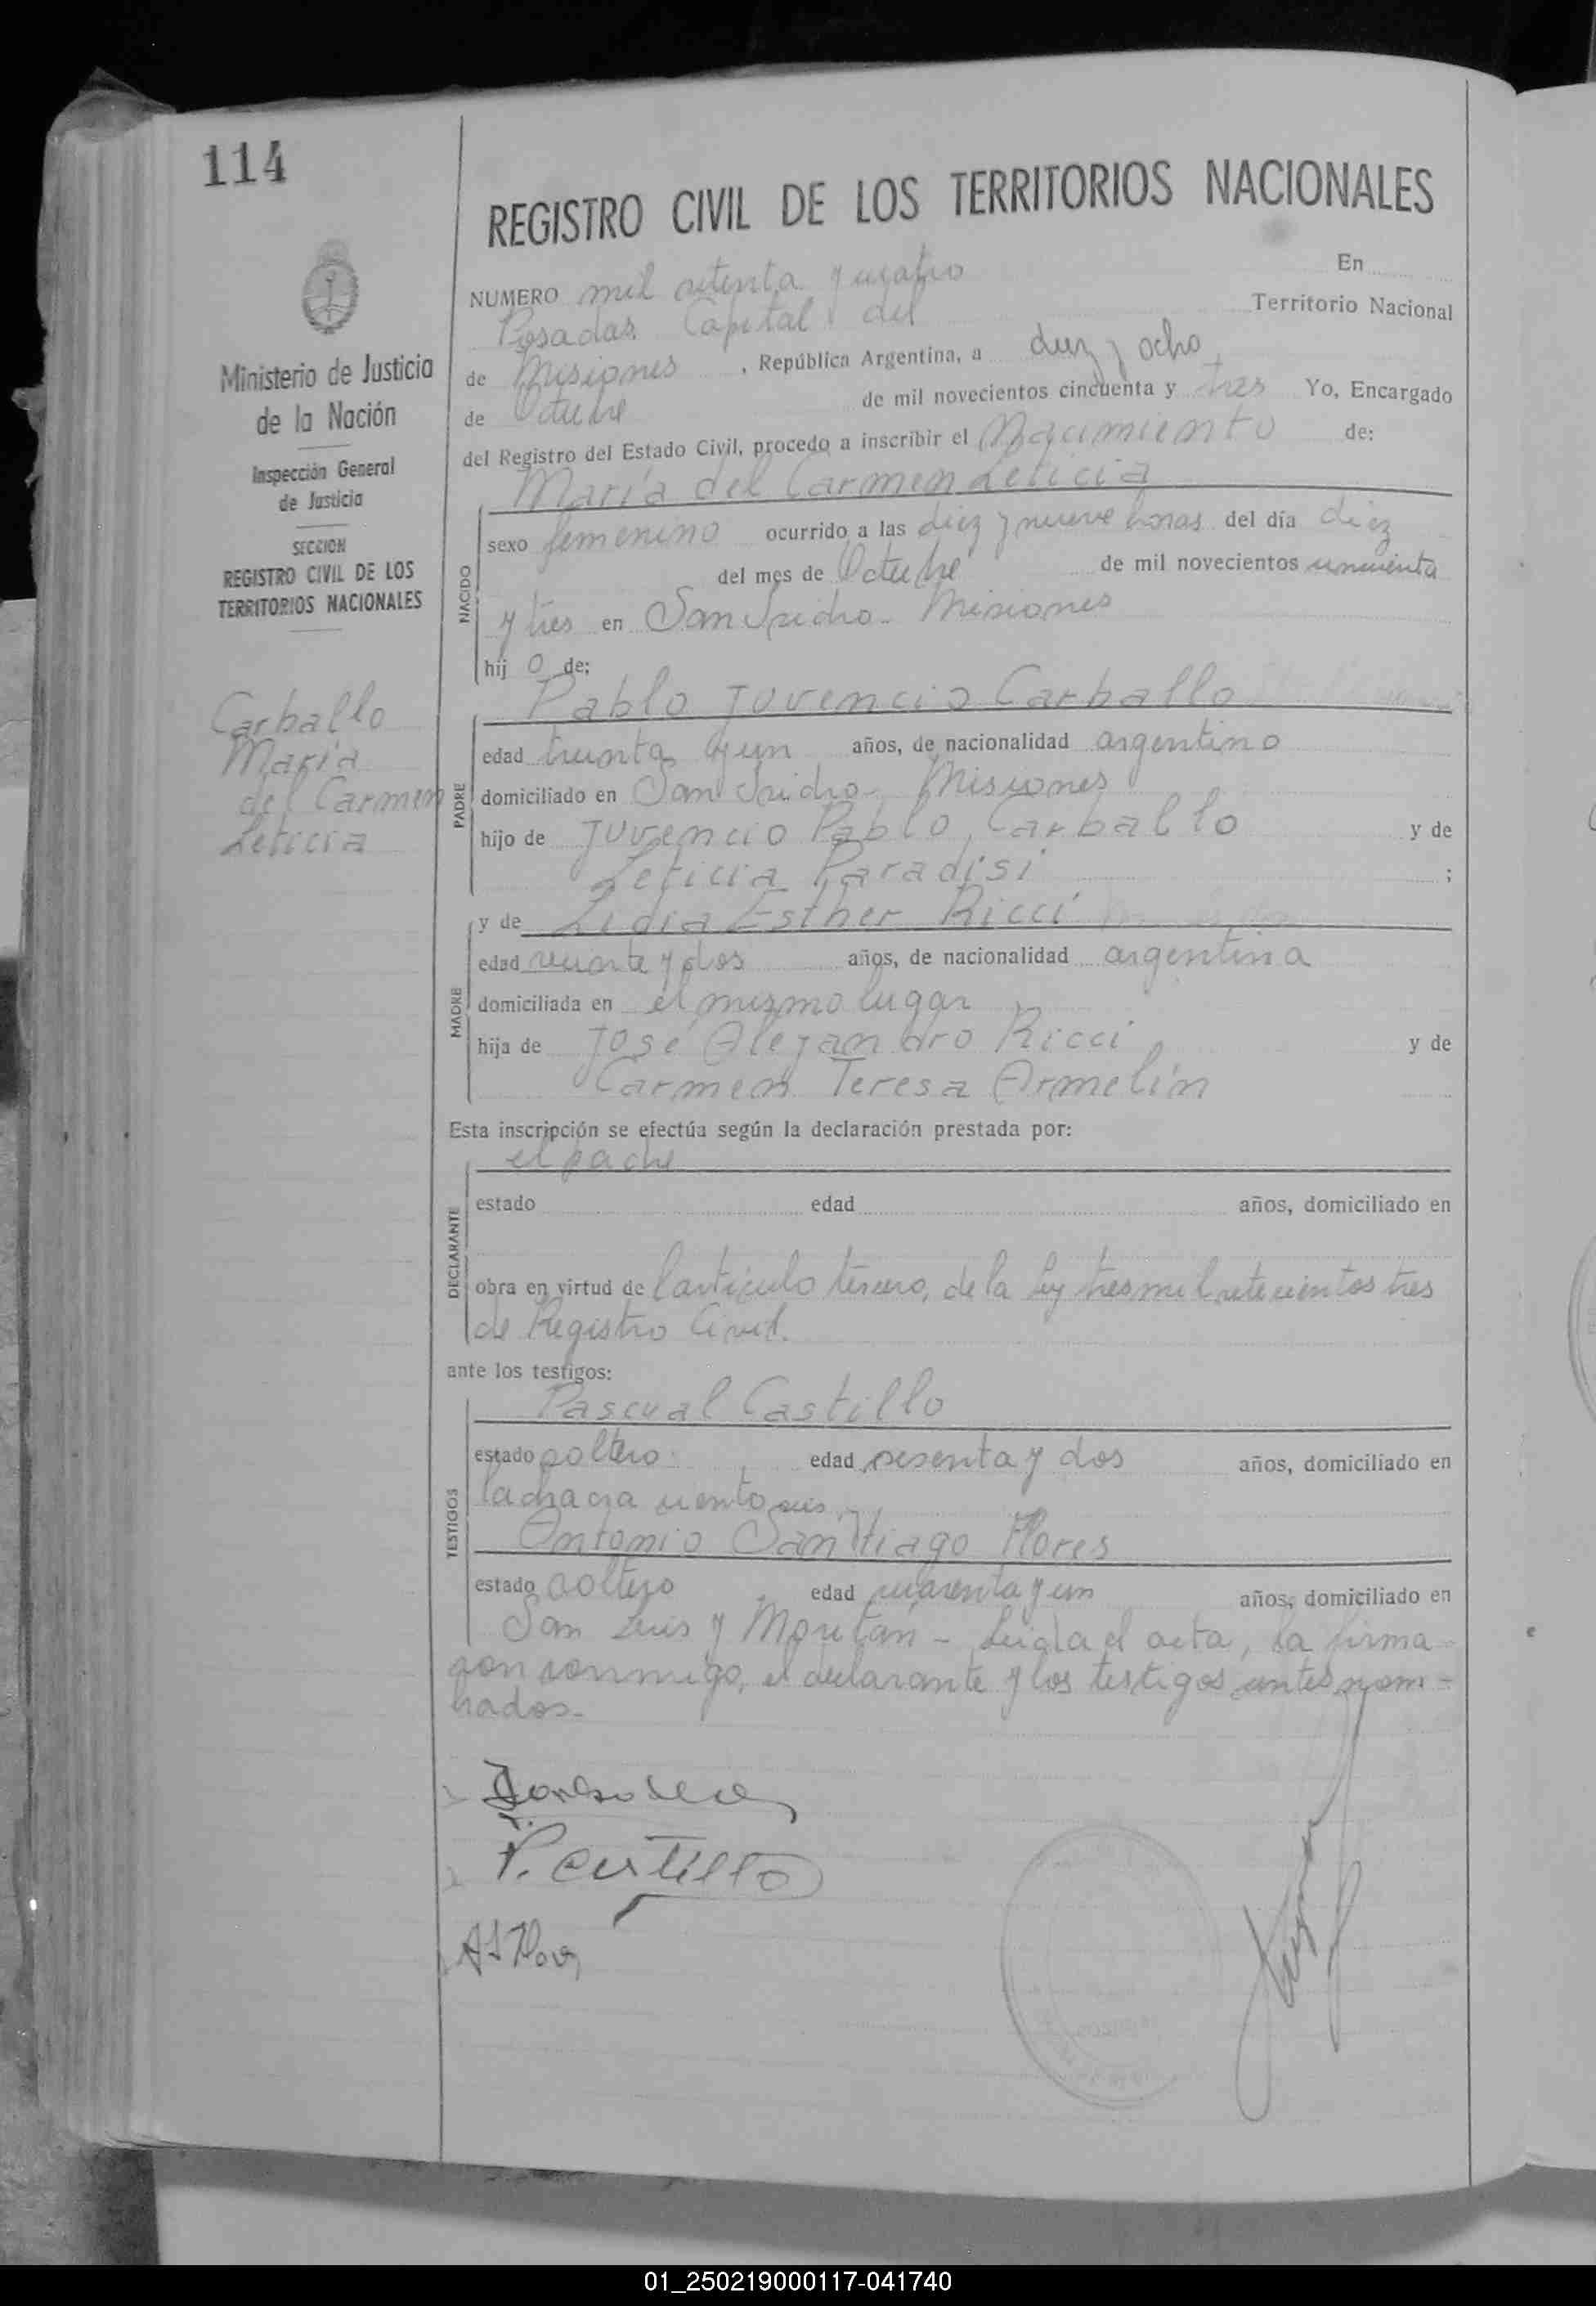 114
REGISTRO CIVIL DE LOS TERRITORIOS NACIONALES
Ministerio de Justicia
de la Nación
Inspección General
de Justicia
SECCION
REGISTRO CIVIL DE LOS
TERRITORIOS NACIONALES
Carballo
María
del Carmen
Leticia
NUMERO mil setenta y cuatro En
Posadas Capital del Territorio Nacional
de Misiones , República Argentina, a diez y ocho
de Octubre de mil novecientos cincuenta y tres Yo, Encargado
del Registro del Estado Civil, procedo a inscribir el Nacimiento de:
María del Carmen Leticia
NACIDO
sexo femenino ocurrido a las diez y nueve horas del día diez
del mes de Octubre de mil novecientos cincuenta
y tres en San Isidro - Misiones
hij o de:
Pablo Juvencio Carballo
PADRE
edad treinta y un años, de nacionalidad argentino
domiciliado en San Isidro - Misiones
hijo de Juvencio Pablo Carballo y de
Leticia Paradisi ;
y de Lidia Esther Ricci
MADRE
edad veinte y dos años, de nacionalidad argentina
domiciliada en el mismo lugar
hija de José Alejandro Ricci y de
Carmen Teresa Armelin
Esta inscripción se efectúa según la declaración prestada por:
el padre
DECLARANTE
estado edad años, domiciliado en
obra en virtud de l artículo tercero, de la ley tres mil setecientos tres
de Registro Civil.
ante los testigos:
Pascual Castillo
TESTIGOS
estado soltero edad sesenta y dos años, domiciliado en
la chacra ciento seis
Antonio Santiago Flores
estado soltero edad cuarenta y un años, domiciliado en
San Luis y Moritán - Leida el acta, la firma
son conmigo, el declarante y los testigos antes nom-
brados.-
P. Castillo
A S Flores
01_250219000117-041740